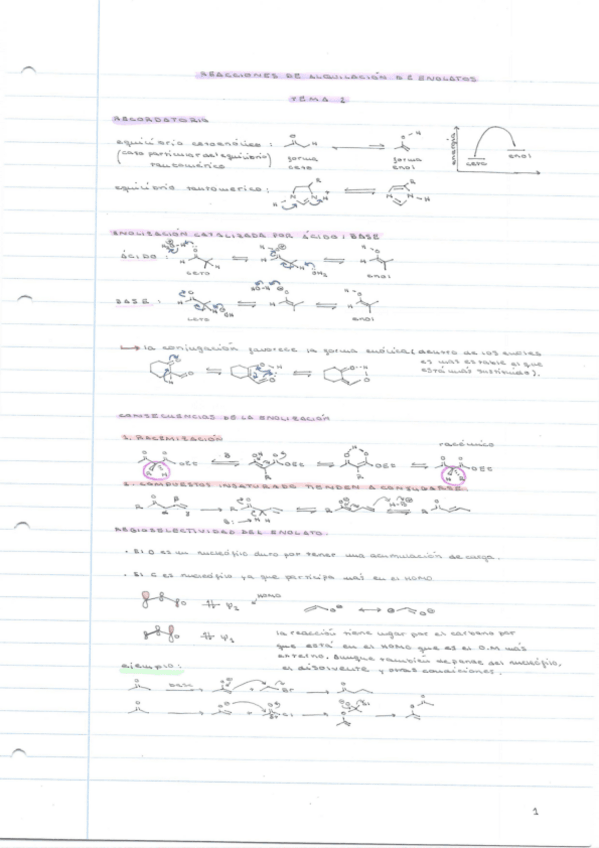 REACCIONES DE ALQUILACIÓN DE ENOLATOS
TEMA 1
RECORDATORIO
equilibrio cetoenólico:
(caso particular del equilibrio
tautomérico)
forma
ceto
forma
enol
energía
ceto
enol
equilibrio tautomérico:
ENOLIZACIÓN CATALIZADA POR ÁCIDO / BASE
ÁCIDO:
ceto
enol
BASE:
ceto
enol
la conjugación favorece la forma enólica (dentro de los enoles
es más estable el que
está más sustituido).
CONSECUENCIAS DE LA ENOLIZACIÓN
1. RACEMIZACIÓN
racémico
OEt
OEt
OEt
OEt
2. COMPUESTOS INSATURADO TIENDEN A CONJUGARSE
REGIOSELECTIVIDAD DEL ENOLATO
· El O es un nucleófilo duro por tener una acumulación de carga.
· El C es nucleófilo ya que participa más en el HOMO
HOMO
la reacción tiene lugar por el carbono por
que está en el HOMO que es el O.M más
externo. Aunque también depende del nucleófilo,
el disolvente y otras condiciones.
ejemplo:
base
Br
1